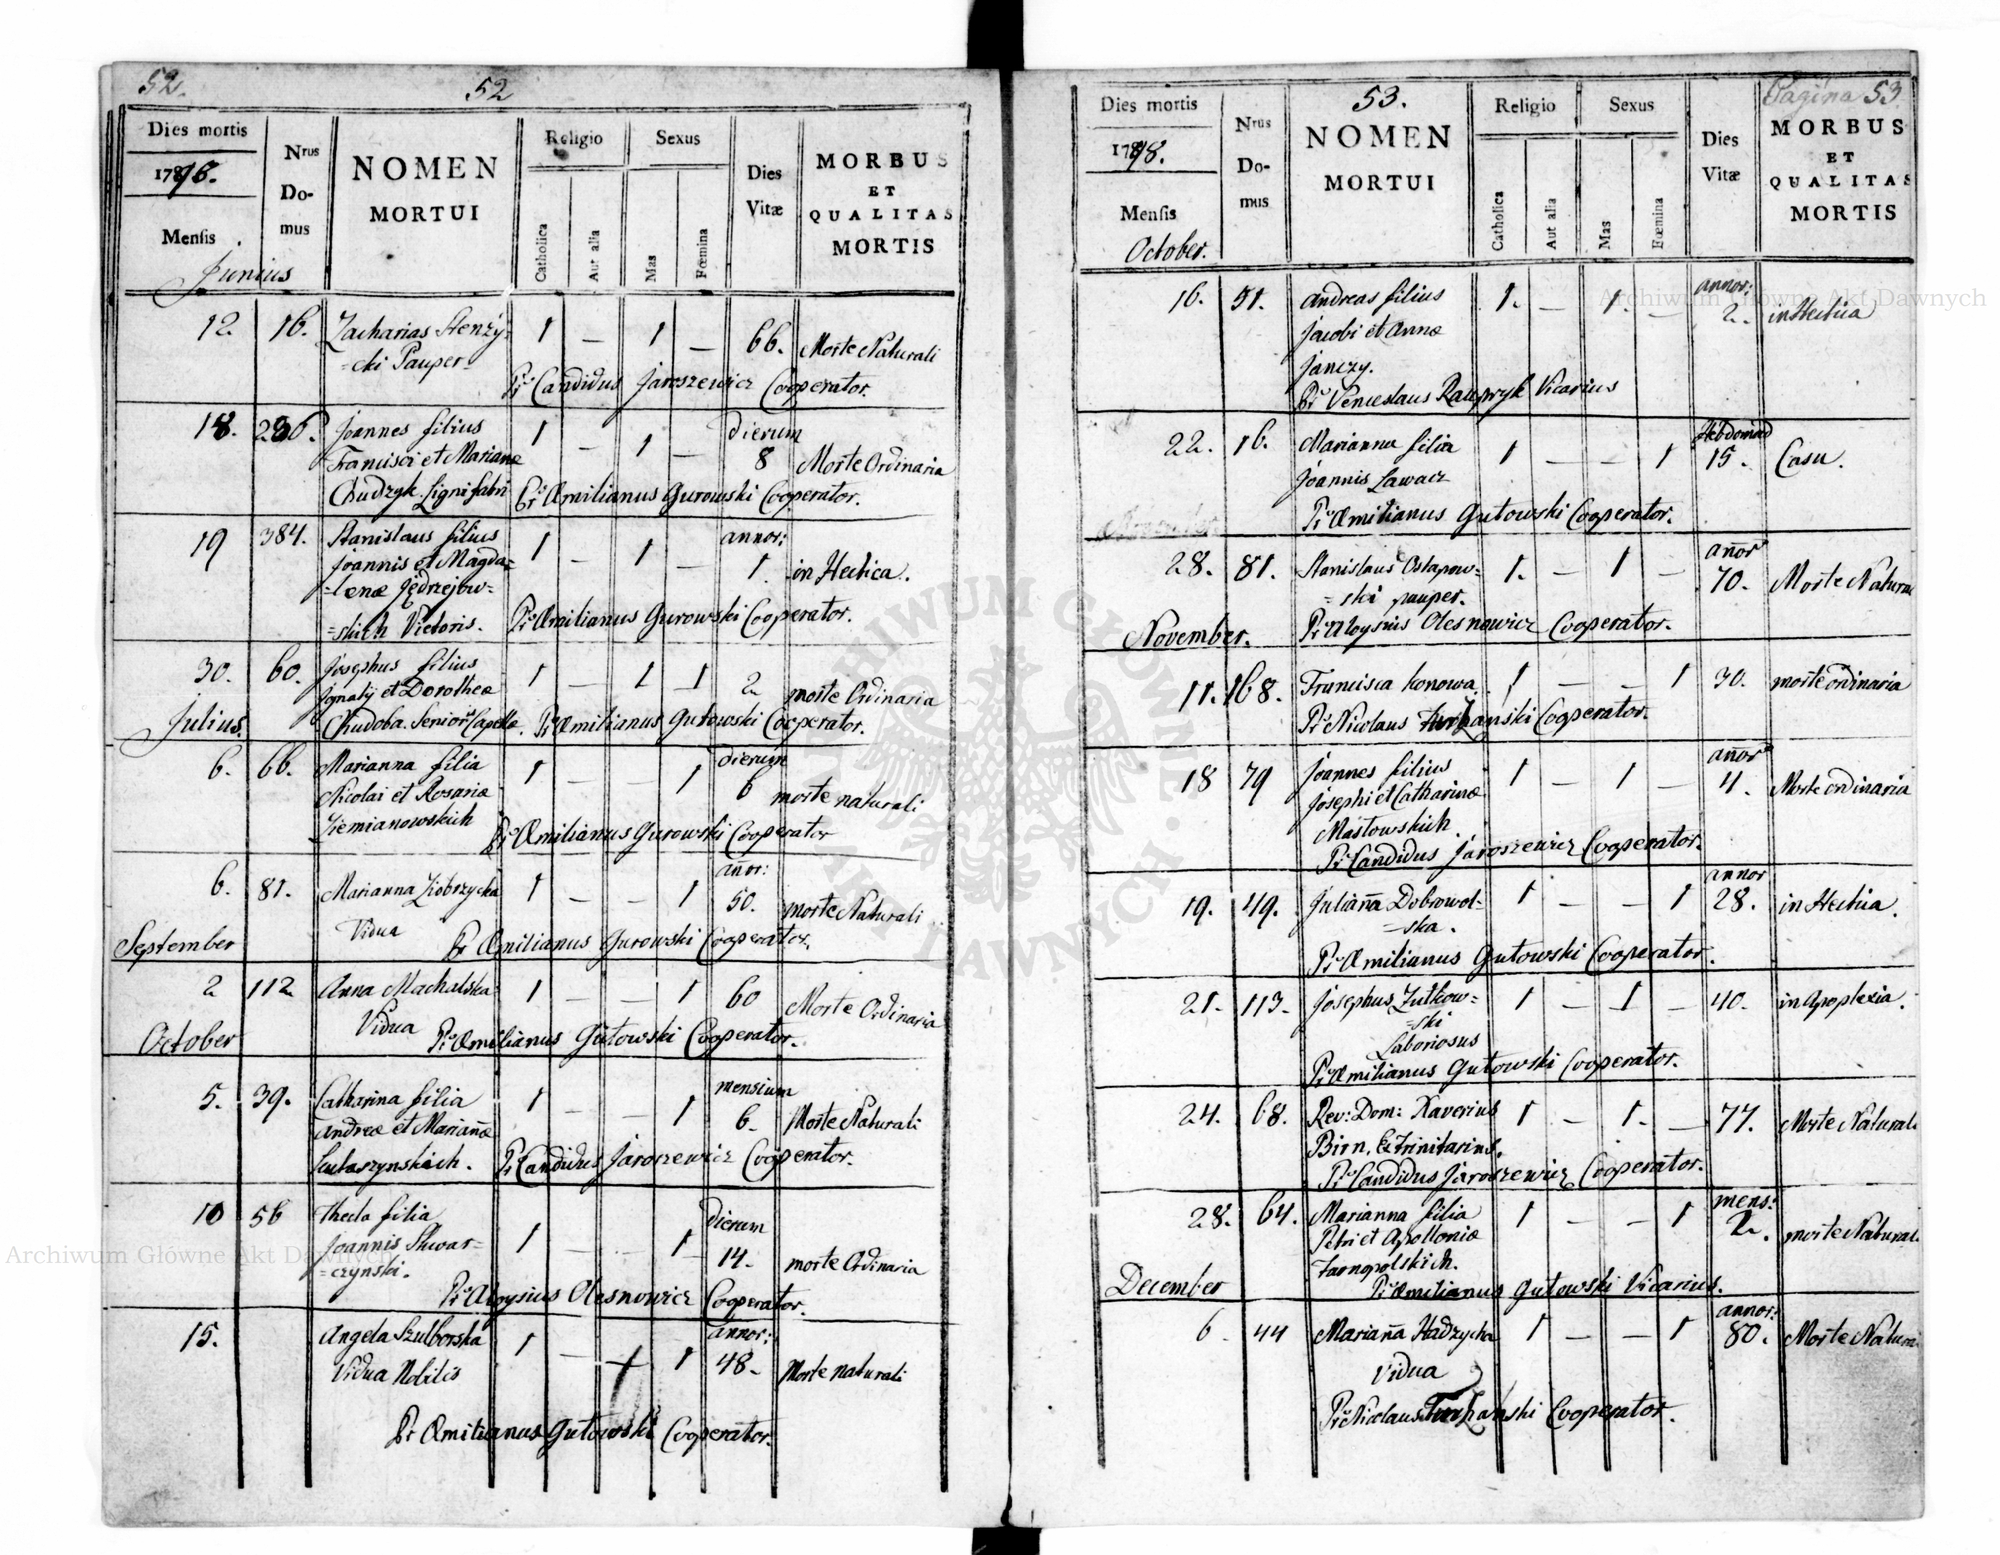 52.
52
Dies mortis
1796.
Mensis
Junius
Nrus
Do-
mus
NOMEN
MORTUI
Religio
Catholica
Aut alia
Sexus
Mas
Fœmina
Dies
Vitæ
MORBUS
ET
QUALITAS
MORTIS
12. 16. Zacharias Stenży- 1 — 1 — 66. Morte Naturali
=cki Pauper
Pr Candidus Jaroszewicz Cooperator.
18. 236. Joannes filius 1 — 1 — dierum
Francisci et Mariane 8 Morte Ordinaria
Chudzyk. Ligni fabri Pr Æmilianus Gurowski Cooperator.
19 384. Stanislaus filius 1 — 1 — annor:
Joannis et Magda= 1 in Hectica.
=lenæ Jędrzejow=
=skich Vietoris. Pr Æmilianus Gurowski Cooperator.
30. 60. Josephus filius 1 — 1 1 2
Ignatij et Dorotheæ morte Ordinaria
Julius. Chudoba. Senior Capellæ. Pr Æmilianus Gutowski Cooperator.
6. 66. Marianna filia 1 — — 1 dierum
Nicolai et Rosariæ 6 morte naturali
Ziemianowskich Pr Æmilianus Gurowski Cooperator
6. 81. Marianna Ziobrzycka 1 — — 1 añor:
50. morte Naturali
Vidua Pr Æmilianus Gurowski Cooperator.
September
2 112 Anna Machalska 1 — — 1 60 Morte Ordinaria
Vidua Pr Æmilianus Gutowski Cooperator.
October
5. 39. Catharina filia 1 — — 1 mensium
Andreæ et Mariañæ 6. Morte Naturali
Lukaszynskich. Pr Candidus Jaroszewicz Cooperator.
10 56 Thecla filia 1 — — 1 dierum
Joannis Skwar= 14. morte Ordinaria
=czynski.
Pr Aloysius Olesnowicz Cooperator.
15. Angela Szulborska 1 — + 1 annor:
Vidua Nobilis 48. Morte naturali
Pr Æmilianus Gutowski Cooperator.
53.
Pagina 53
Dies mortis
1798.
Mensis
October.
Nrus
Do-
mus
NOMEN
MORTUI
Religio
Catholica
Aut alia
Sexus
Mas
Fœmina
Dies
Vitæ
MORBUS
ET
QUALITAS
MORTIS
16. 51. Andreas filius 1. — 1. — annor:
Jacobi et Annæ 2. in Hectica
Janczy.
Pr Venceslaus Vicarius
22. 16. Marianna filia 1 — — 1 Hebdomad
Joannis Lawacz 15. Casu.
Pr Æmilianus Gutowski Cooperator.
November
28. 81. Stanislaus Ostapow= 1. — 1 — añor
=ski pauper. 70. Morte Natura
November. Pr Aloysius Olesnowicz Cooperator.
11. 168. Francisca Konowa. 1 — — 1 30. morte ordinaria
Pr Nicolaus Turzanski Cooperator.
18 79 Joannes filius 1 — 1 — añor
Josephi et Catharinæ 4. Morte ordinaria
Mastowskich
Pr Candidus Jaroszewicz Cooperator.
19. 49. Juliaña Dobrowol= 1 — — 1 annor
=ska. 28. in Hectica.
Pr Æmilianus Gutowski Cooperator.
21. 113. Josephus Zutkow= 1 — 1 — 40. in Apoplexia.
=ski
Laboriosus
Pr Æmilianus Gutowski Cooperator.
24. 68. Rev: Dom: Xaverius 1 — 1. — 77. Morte Naturali
Birn, Ex Trinitarius.
Pr Candidus Jaroszewicz Cooperator.
28. 64. Marianna filia 1 — — 1 mens:
Petri et Apolloniæ 2. morte Naturali
Tarnopolskich.
December Pr Æmilianus Gutowski Vicarius.
6. 44 Mariaña Hadzycka 1 — — 1 annor:
Vidua 80. Morte Natura
Pr Nicolaus Turzanski Cooperator.
Archiwum Główne Akt Dawnych
Archiwum Główne Akt Dawnych
ARCHIWUM GŁÓWNE AKT DAWNYCH